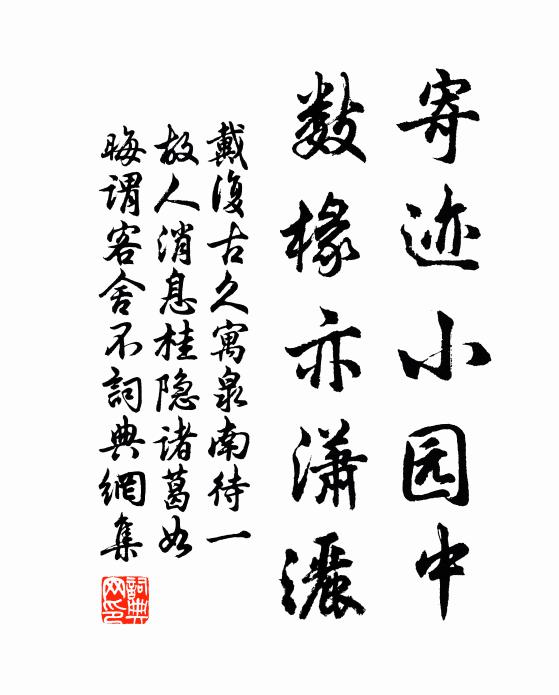 寄迹小园中
数椽亦潇灑
戴復古久寓泉南待一
故人消息桂隐诸葛如
晦谓客舍不詞典網集
詞典网印